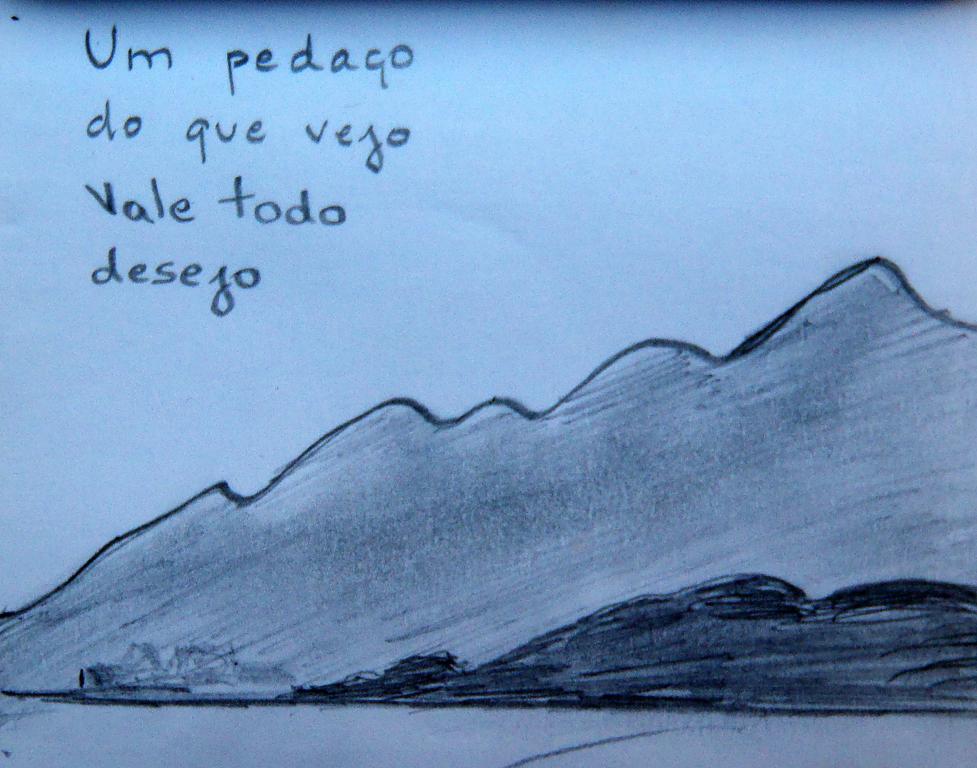 Um pedaço
do que vejo
Vale todo
desejo